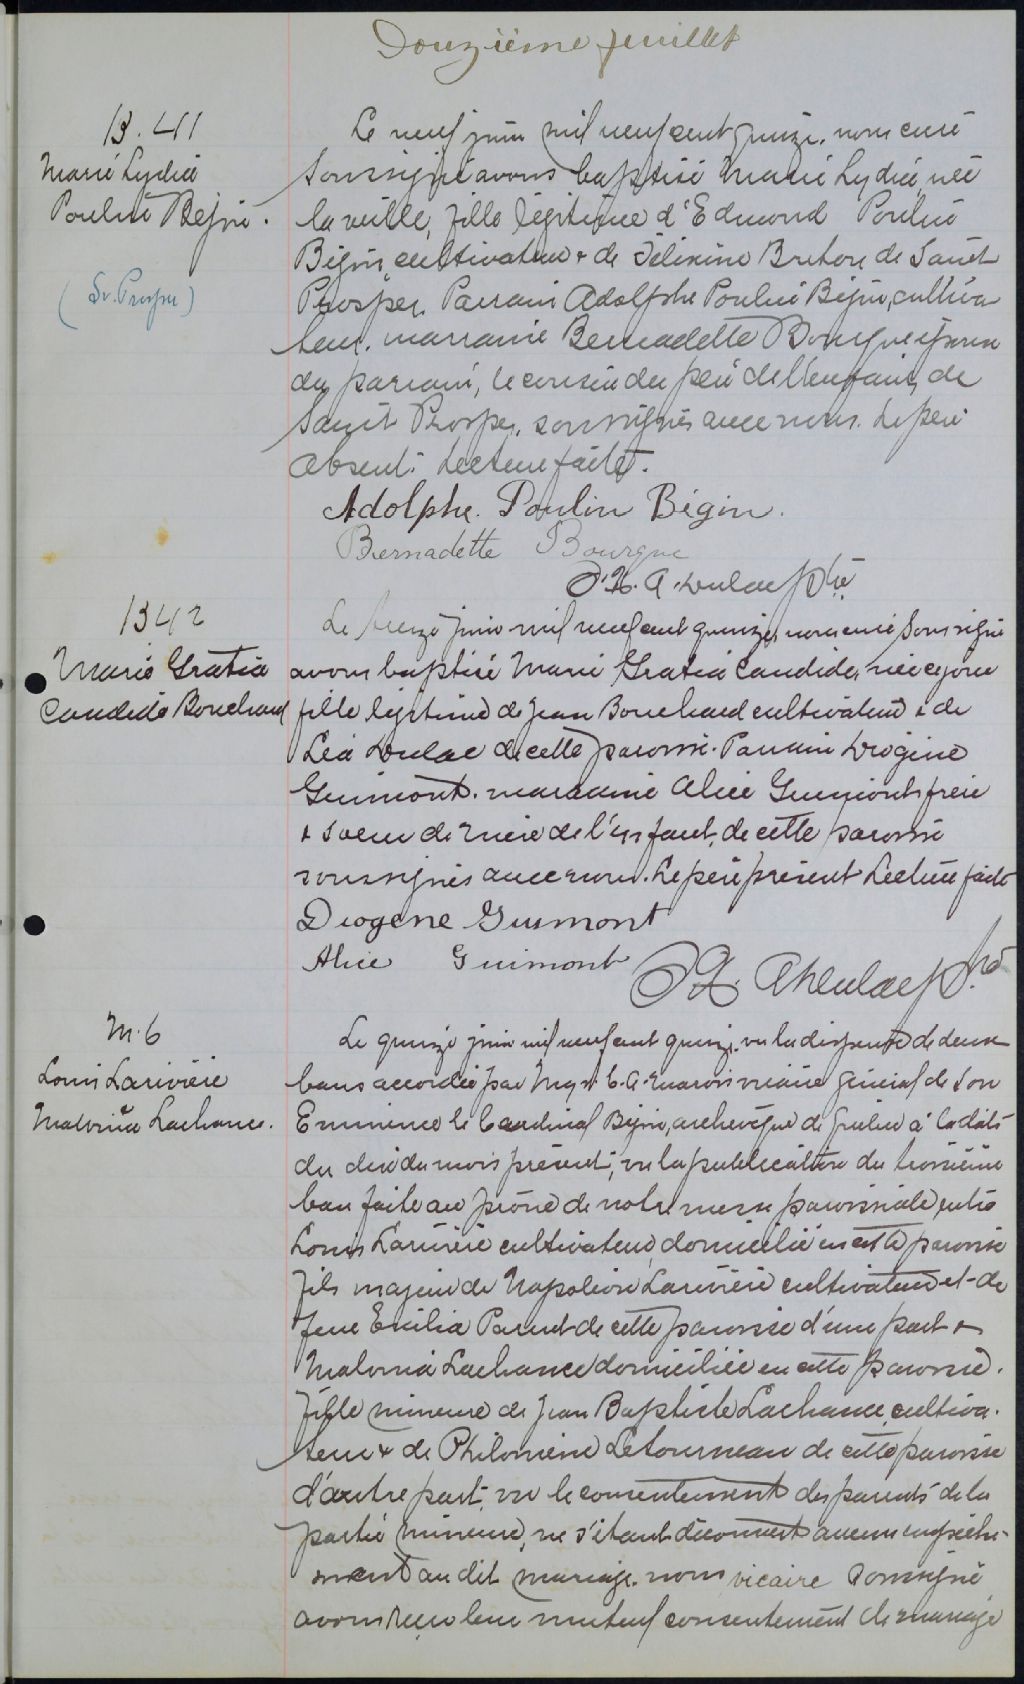 Douzième feuillet
B. 41
Marie Lydia
Poulin Bégin.
(St. Prosper)
Le neuf juin mil neuf cent quinze, nous curé
soussigné avons baptisé Marie Lydia, née
la veille, fille légitime d'Edmond Poulin
Bégin, cultivateur & de Délixine Breton de Saint
Prosper. Parrain Adolphe Poulin Bégin, cultiva
teur. marraine Bernadette Bourgue épouse
du parrain, le cousin du père de l'enfant, de
Saint Prosper, soussignés avec nous. Le père
absent. Lecture faite.
Adolphe. Poulin Bégin.
Bernadette Bourgue
A. Dulac Ptre
B 42
Marie Gratia
Candide Bouchard
Le treize juin mil neuf cent quinze, nous curé soussigné
avons baptisé Marie Gratia Candide, née ce jour
fille légitime de Jean Bouchard cultivateur & de
Léa Dulac de cette paroisse. Parrain Diogène
Guimont. marraine Alice Guimont, frère
& soeur de mère de l'enfant, de cette paroisse
soussignés avec nous. Le père présent. Lecture faite
Diogene Guimont
Alice Guimont
A Dulac Ptre
M. 6
Louis Larivière
Malvina Lachance.
Le quinze juin mil neuf cent quinze, vu la dispense de deux
bans accordée par Mgr C. A. Marois vicaire général de Son
Eminence le Cardinal Bégin, archevêque de Québec à la date
du dix du mois présent, vu la publication du troisième
ban faite au prône de notre messe paroissiale, entre
Louis Larivière cultivateur, domicilié en cette paroisse
fils majeur de Napoléon Larivière cultivateur et de
feue Emilia Paquet de cette paroisse d'une part &
Malvina Lachance domiciliée en cette paroisse.
fille mineure de Jean Baptiste Lachance, cultiva-
teur & de Philomène Letourneau de cette paroisse
d'autre part, vu le consentement des parents de la
partie mineure, ne s'étant découvert aucun empêche-
ment au dit mariage, nous vicaire soussigné
avons reçu leur mutuel consentement de mariage